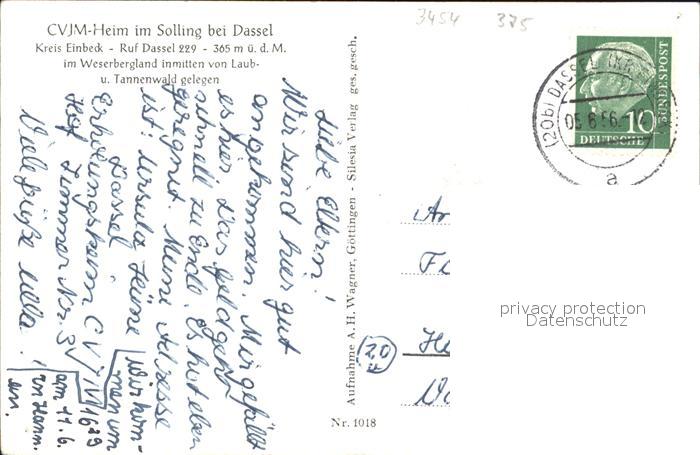 3454 375
CVJM-Heim im Solling bei Dassel
Kreis Einbeck - Ruf Dassel 229 - 365 m ü. d. M.
im Weserbergland inmitten von Laub-
u. Tannenwald gelegen
Liebe Eltern!
Wir sind hier gut
angekommen. Mir gefällt
es hier. Das Geld geht
schnell zu Ende. Es hat eben
geregnet. Meine Adresse
ist: Ursula Heine
Dassel
Erholungsheim CVJM
Hof Zimmer Nr. 3
Viele Grüße Ulla.
Wir kom-
men um
16 29
am 11. 6.
in Hann.
an.
Aufnahme A. H. Wagner, Göttingen - Silesia Verlag ges. gesch.
Nr. 1018
(20b) DASSEL (KR
05.6.56.
a
10
DEUTSCHE
BUNDESPOST
An
20
He
privacy protection
Datenschutz